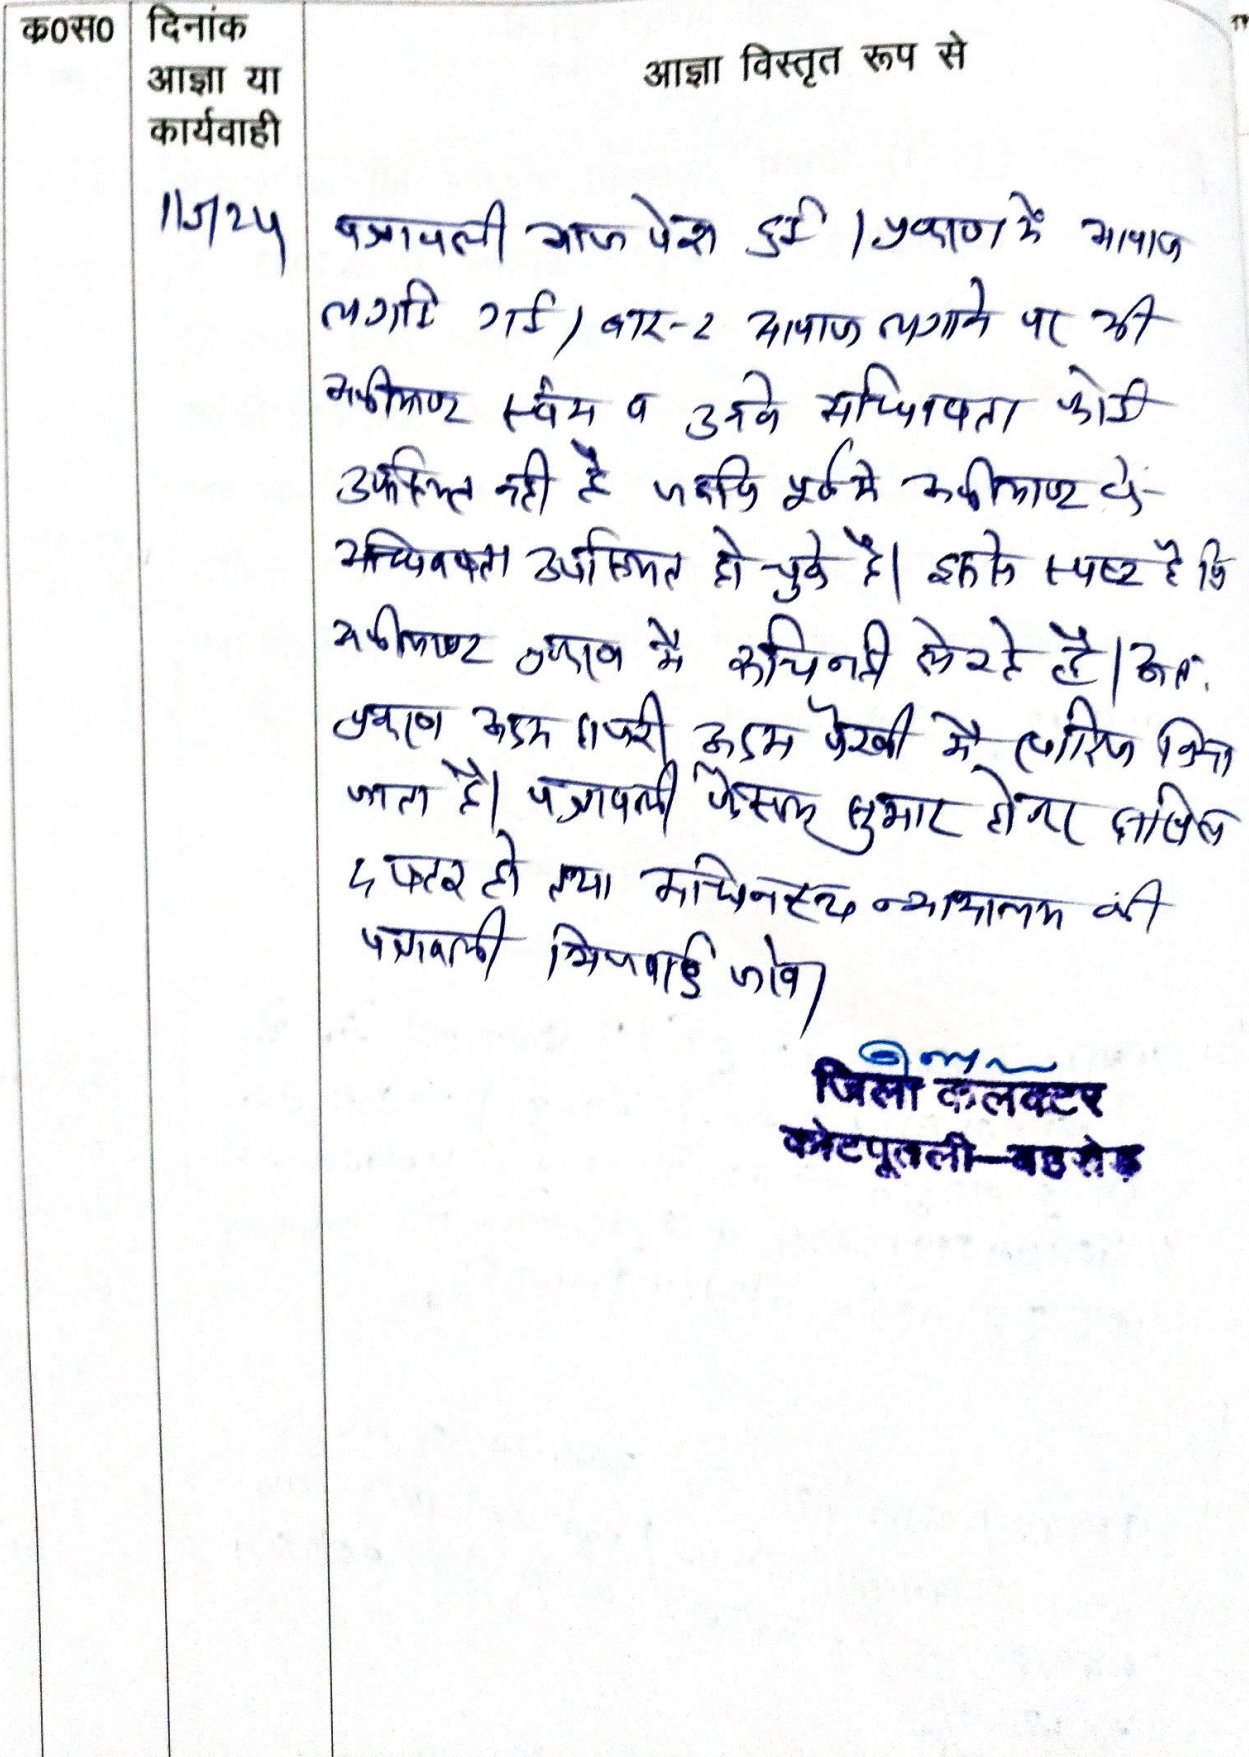 क०स०
दिनांक
आज्ञा या
कार्यवाही
आज्ञा विस्तृत रूप से
पत्रावली आज पेश हुई । प्रकरण में आवाज
लगाई गई । बार-2 आवाज लगाने पर भी
अपीलाण्ट स्वंय व उनके अधिवक्ता कोई
उपस्थित नही है जबकि पूर्व मे अपीलाण्ट के
अधिवक्ता उपस्थित हो चुके है। इससे स्पष्ट है कि
अपीलाण्ट प्रकरण मे रूचि नही ले रहे है। अतः
प्रकरण अदम हाजरी अदम पैरवी मे खारिज किया
जाता है। पत्रावली फैसल शुमार होकर दाखिल
दफ्तर हो तथा अधिनस्थ न्यायालय की
पत्रावली भिजवाई जावे।
जिला कलक्टर
कोटपूतली-बहरोड़